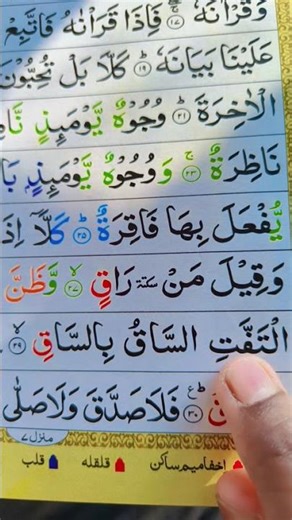 وَقُرْاٰنَهٗ ۚۖ ۝۱۷ فَاِذَا قَرَاْنٰهُ فَاتَّبِعْ
عَلَيْنَا بَيَانَهٗ ؕ ۝۱۹ كَلَّا بَلْ تُحِبُّوْنَ
الْاٰخِرَةَ ؕ ۝۲۱ وُجُوْهٌ يَّوْمَىِٕذٍ
نَاظِرَةٌ ۚ ۝۲۳ وَوُجُوْهٌ يَّوْمَىِٕذٍۭ
يُّفْعَلَ بِهَا فَاقِرَةٌ ؕ ۝۲۵ كَلَّاۤ اِذَا
وَقِيْلَ مَنْ ٚ سكتة رَاقٍ ۙ ۝۲۷ وَّظَنَّ
الْتَفَّتِ السَّاقُ بِالسَّاقِ ۙ ۝۲۹
ؕ ۝۳۰ ع فَلَا صَدَّقَ وَلَا صَلّٰى
منزل ۷
اخفا میم ساکن قلقله قلب